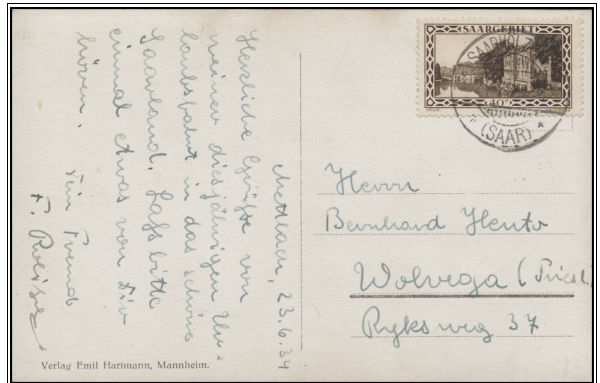 Mettlach, 23.6.34
Herzliche Grüße von
meiner diesjährigen Ur-
laubsfahrt in das schöne
Saarland. Lass bitte
einmal etwas von Dir
hören.
Dein Freund
F.
SAARGEBIET
40
SAARHÖLZ
(SAAR)
Herrn
Bernhard Hento
Wolvega (Friesl.
Ryksweg 37
Verlag Emil Hartmann, Mannheim.